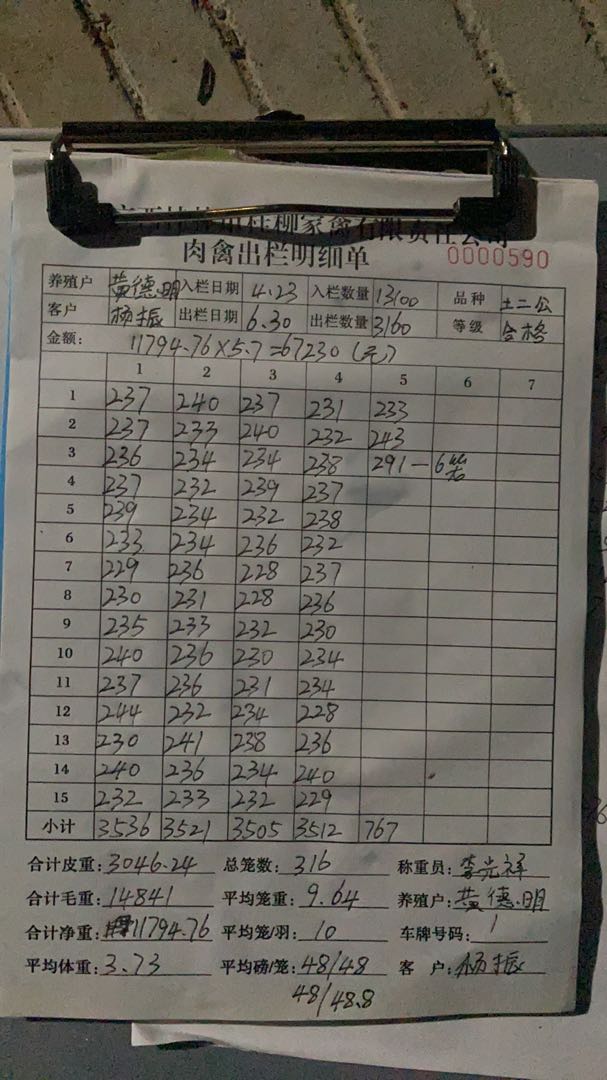 桂柳家禽有限责任公司
肉禽出栏明细单 0000590
养殖户 黄德明 入栏日期 4.23 入栏数量 13100 品种 土二公
客户 杨振 出栏日期 6.30 出栏数量 3160 等级 合格
金额: 11794.76×5.7=67230(元)
1 2 3 4 5 6 7
1 237 240 237 231 233
2 237 233 240 232 243
3 236 234 234 238 291-6笼
4 237 232 239 237
5 239 234 232 238
6 233 234 236 232
7 229 236 228 237
8 230 231 228 236
9 235 233 232 230
10 240 236 230 234
11 237 236 231 234
12 244 232 234 228
13 230 241 238 236
14 240 236 234 240
15 232 233 232 229
小计 3536 3521 3505 3512 767
合计皮重: 3046.24 总笼数: 316 称重员: 李光祥
合计毛重: 14841 平均笼重: 9.64 养殖户: 黄德明
合计净重: 11794.76 平均笼/羽: 10 车牌号码: 1
平均体重: 3.73 平均磅/笼: 48/48 客 户: 杨振
48/48.8